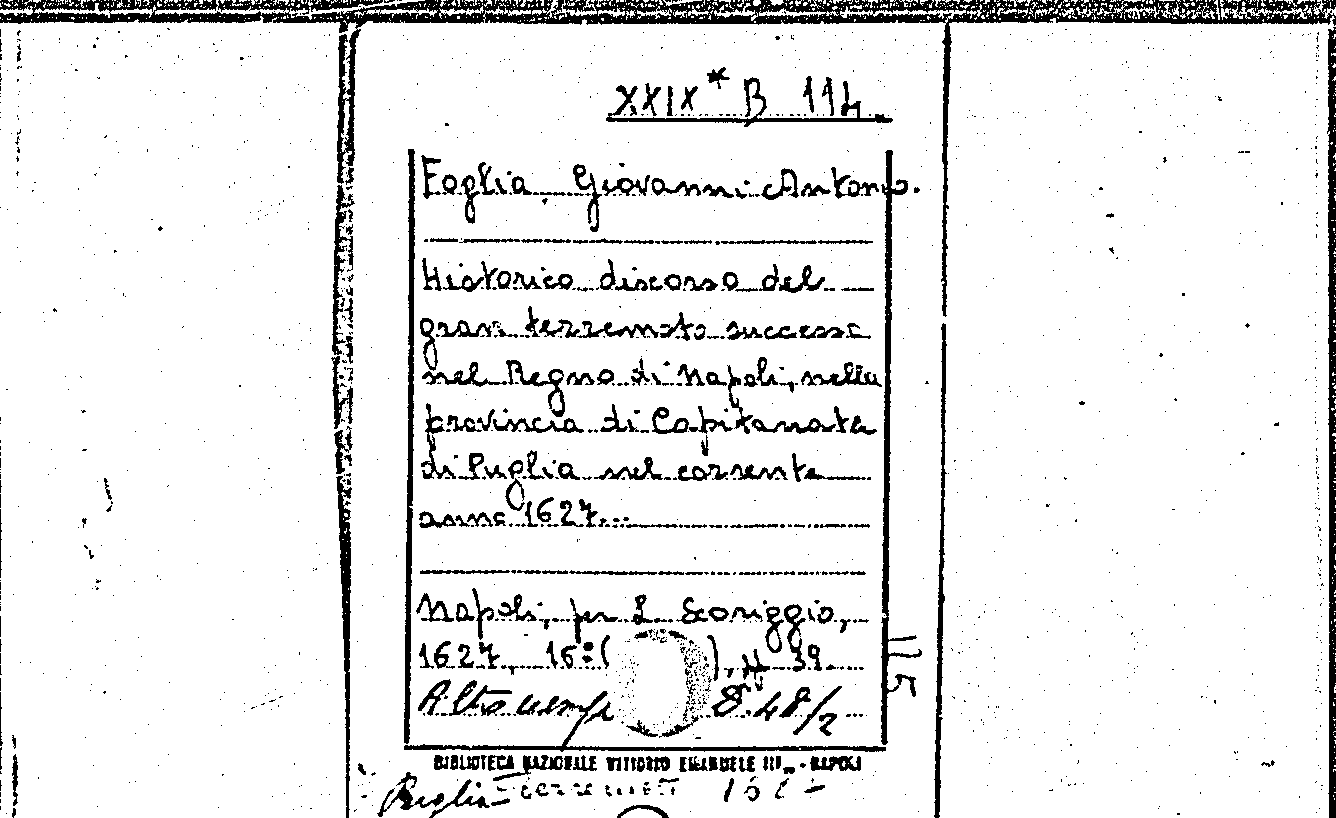 XXIX* B 114.
Foglia, Giovanni Antonio.
Historico discorso del
gran terremoto successo
nel Regno di Napoli, nella
provincia di Capitanata
di Puglia nel corrente
anno 1627...
Napoli, per L. Scoriggio,
1627, 16°( ), 39.
Altro 8.48/2
11 5
BIBLIOTECA NAZIONALE VITTORIO EMANUELE III - NAPOLI
Puglia - terremoti 162